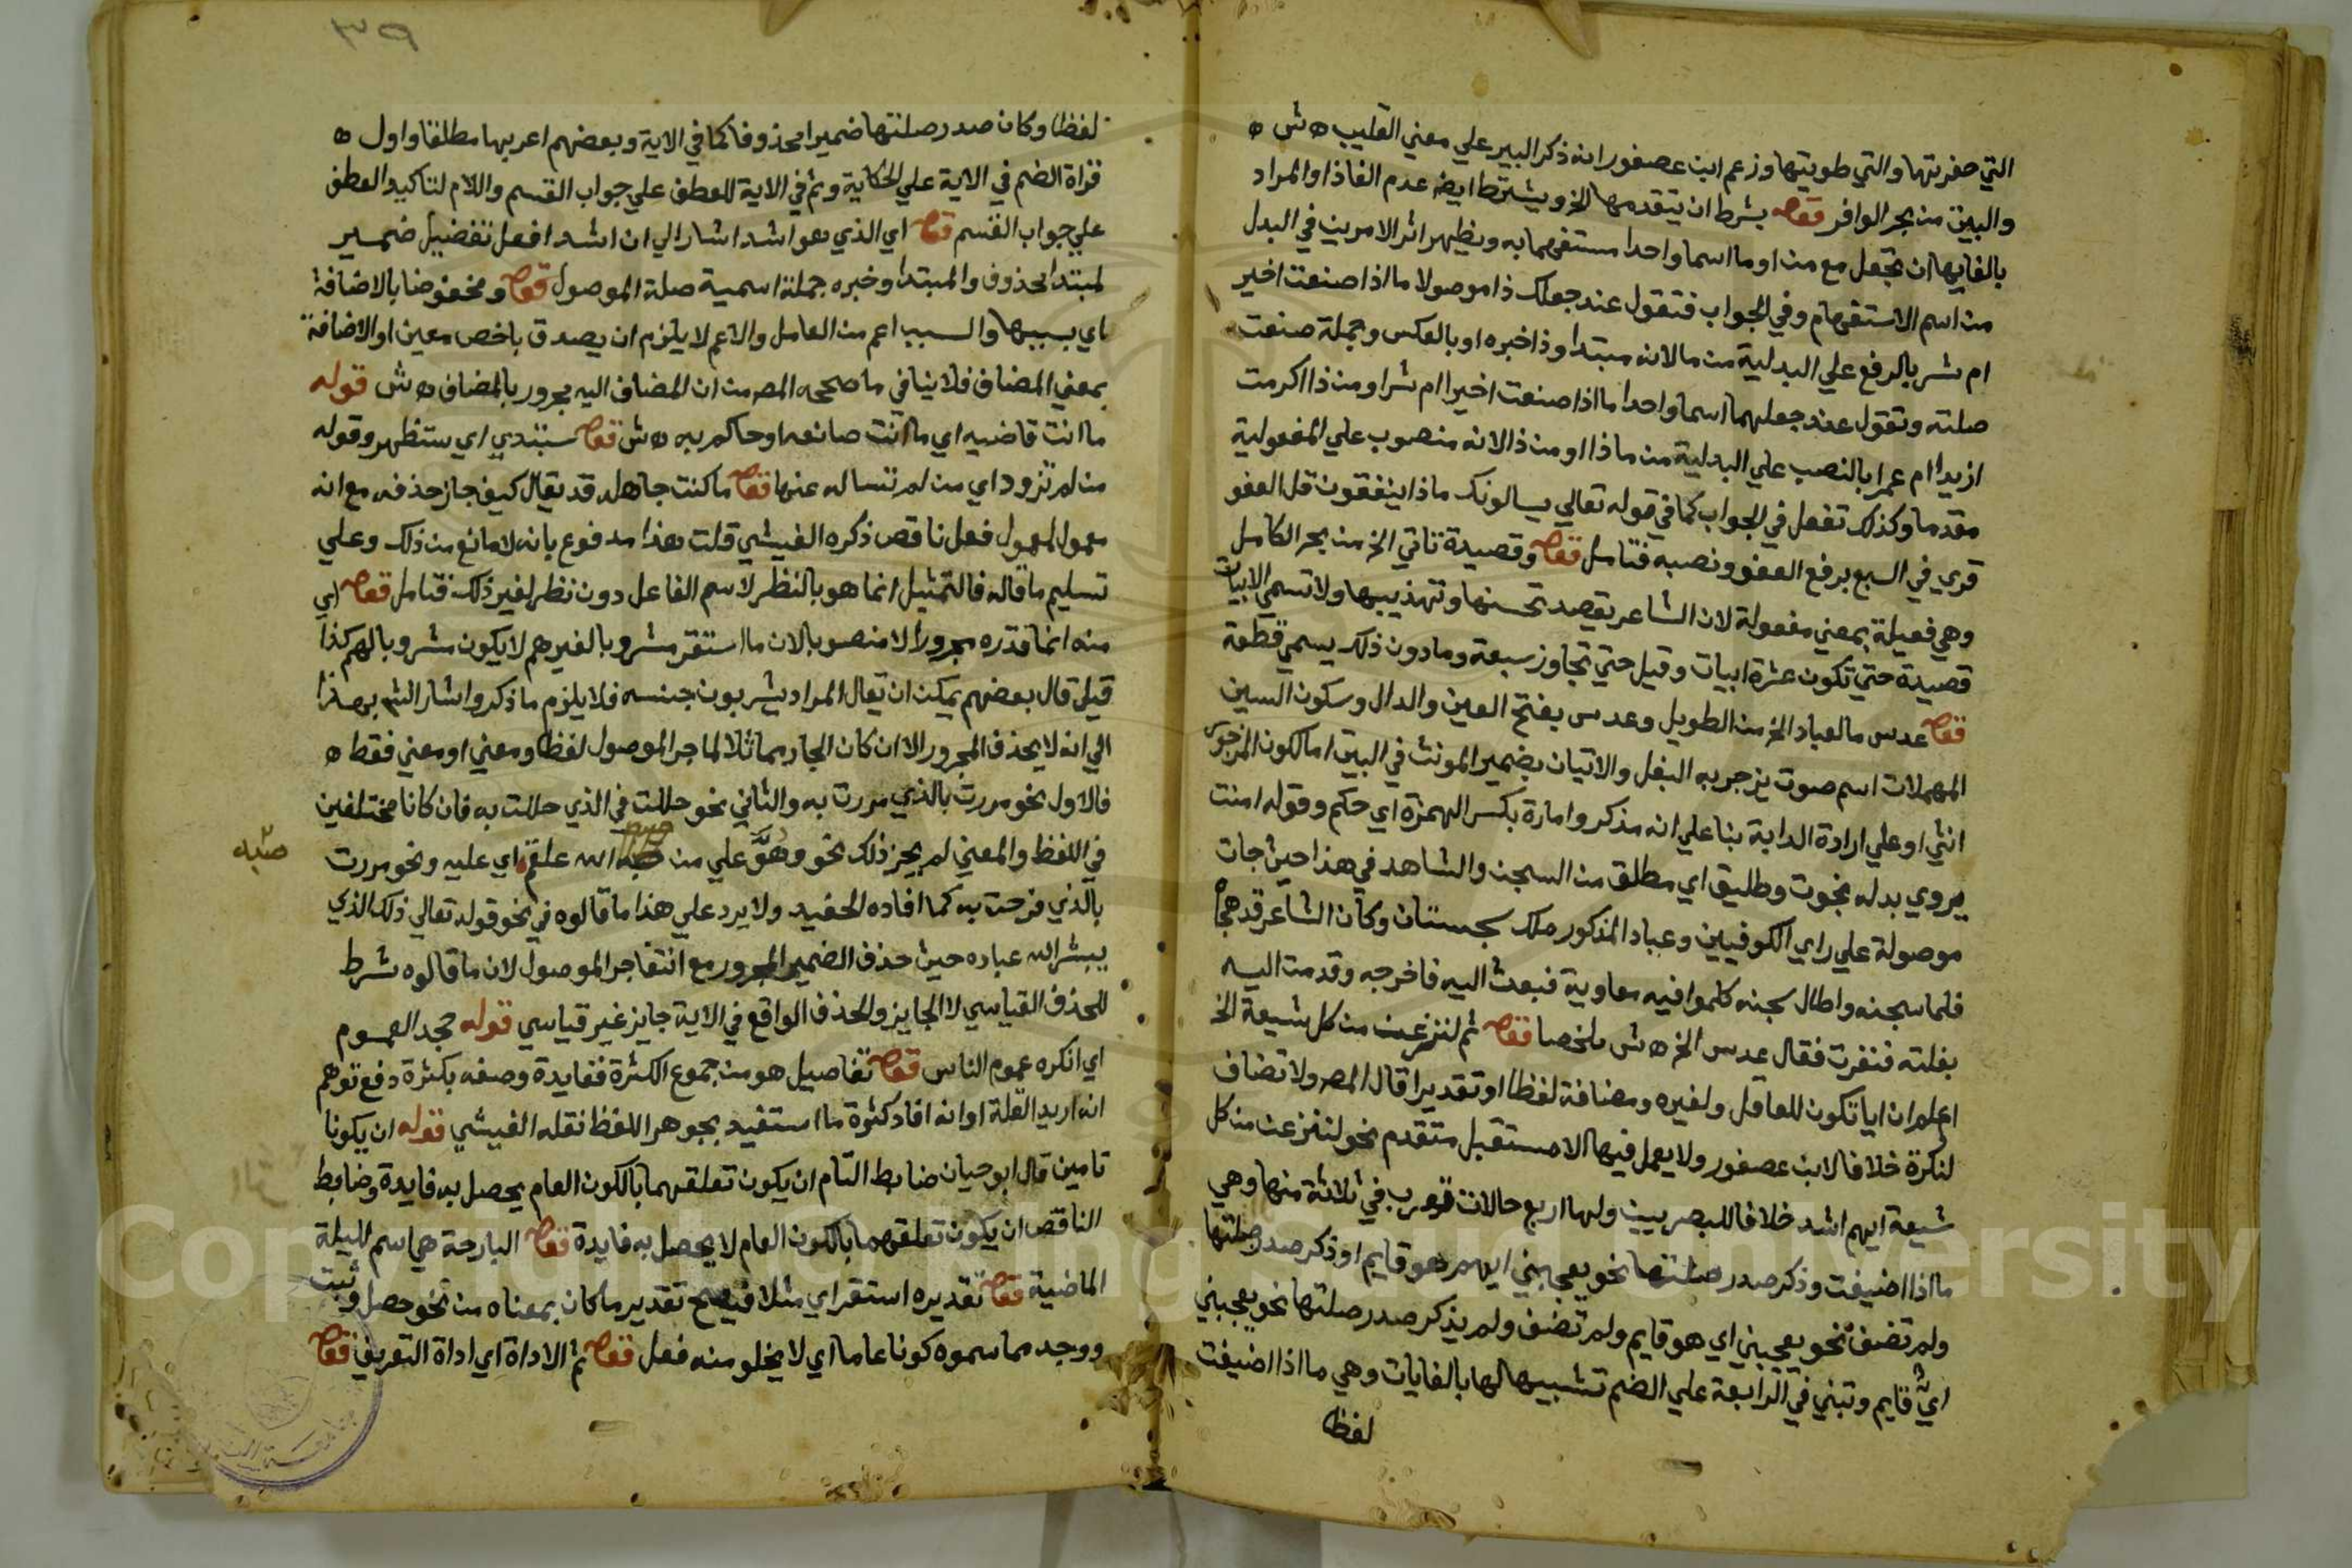 التي حفرتها والتي طويتها وزعم ابن عصفور انه ذكر البير علي معني القليب ه ش ه
والبيت من بحر الوافر قوله بشرط ان يتقدمها الخ ويشترط ايضا عدم الغاذا والمراد
بالغايها ان تجعل مع من او ما اسما واحدا مستفهما به ويظهر اثر الامرين في البدل
من اسم الاستفهام وفي الجواب فتقول عند جعلك ذا موصولا ماذا صنعت اخير
ام شر بالرفع علي البدلية من ما لانه مبتدا وذا خبره او بالعكس وجملة صنعت
صلته وتقول عند جعلهما اسما واحدا ماذا صنعت اخيرا ام شرا ومن ذا اكرمت
ازيدا ام عمرا بالنصب علي البدلية من ماذا او من ذا لانه منصوب علي المفعولية
مقدما وكذلك تفعل في الجواب كما في قوله تعالي يسالونك ماذا ينفقون قل العفو
قري في السبع برفع العفو ونصبه فتامل قوله وقصيدة تاتي الخ من بحر الكامل
وهي فعيلة بمعني مفعولة لان الشاعر يقصد تحسنها وتهذيبها ولا تسمي الابيات
قصيدة حتي تكون عشرة ابيات وقيل حتي تجاوز سبعة ومادون ذلك يسمي قطعة
قوله عدس ما لعباد الخ من الطويل وعدس بفتح العين والدال وسكون السين
المهملات اسم صوت يزجر به البغل والاتيان بضمير المونث في البيت اما لكون المزجور
انثي او علي ارادة الدابة بنا علي انه مذكر وامارة بكسر الهمزة اي حكم وقوله امنت
يروي بدله نجوت وطليق اي مطلق من السجن والشاهد في هذا حيث جات
موصولة علي راي الكوفيين وعباد المذكور ملك سجستان وكان الشاعر قد هجاه
فلما سجنه واطال سجنه كلموا فيه معاوية فبعث اليه فاخرجه وقدمت اليه
بغلته فنفرت فقال عدس الخ ه ش ملخصا قوله ثم لننزعن من كل شيعة الخ
اعلم ان ايا تكون للعاقل ولغيره ومضافة لفظا او تقديرا قال المص ولا تضاف
لنكرة خلافا لابن عصفور ولا يعمل فيها الا مستقبل متقدم نحو لننزعن من كل
شيعة ايهم اشد خلافا للبصريين ولها اربع حالات تعرب في ثلاثة منها وهي
ما اذا اضيفت وذكر صدر صلتها نحو يعجبني ايهم هو قايم او ذكر صدر صلتها
ولم تضف نحو يعجبني اي هو قايم ولم تضف ولم يذكر صدر صلتها نحو يعجبني
ايٌّ قايم وتبني في الرابعة علي الضم تشبيها لها بالغايات وهي ما اذا اضيفت
لفظا
لفظا وكان صدر صلتها ضميرا محذوفا كما في الاية وبعضهم اعربها مطلقا واول ه
قراة الضم في الاية علي الحكاية وثم في الاية للعطف علي جواب القسم واللام لتاكيد العطف
علي جواب القسم قوله اي الذي هو اشد اشار الي ان اشد افعل تفضيل ضمير
لمبتدا محذوف والمبتدا وخبره جملة اسمية صلة الموصول قوله ومخفوضا بالاضافة
اي بسببها والسبب اعم من العامل والاعم لا يلزم ان يصدق باخص معين او الاضافة
بمعني المضاف فلا ينافي ما صححه المص من ان المضاف اليه مجرور بالمضاف ه ش قوله
ما انت قاضيه اي ما انت صانعه او حاكم به ه ش قوله ستبدي اي ستظهر وقوله
من لم تزود اي من لم تساله عنها قوله ما كنت جاهله قد يقال كيف جاز حذفه مع انه
معمول لمعمول فعل ناقص ذكره الفيشي قلت هذا مدفوع بانه لا مانع من ذلك وعلي
تسليم ما قاله فالتمثيل انما هو بالنظر لاسم الفاعل دون نظر لغير ذلك فتامل قوله اي
منه انما قدره مجرورا لا منصوبا لان ما استقر مشروبا لغيرهم لا يكون مشروبا لهم كذا
قيل قال بعضهم يمكن ان يقال المراد يشربون جنسه فلا يلزم ما ذكر واشار الش بهذا
الي انه لا يحذف المجرور الا ان كان الجار مماثلا لما جر الموصول لفظا ومعني او معني فقط ه
فالاول نحو مررت بالذي مررت به والثاني نحو حللت في الذي حللت به فان كانا مختلفين
في اللفظ والمعني لم يجز ذلك نحو وهُوَّ علي من صبه الله علقم اي عليه ونحو مررت
صبه
صبه
بالذي فرحت به كما افاده الحفيد ولا يرد علي هذا ما قالوه في نحو قوله تعالي ذلك الذي
يبشر الله عباده حيث حذف الضمير المجرور مع انتفا جر الموصول لان ما قالوه شرط
للحذف القياسي لا الجايز والحذف الواقع في الاية جايز غير قياسي قوله جحد العموم
اي انكره عموم الناس قوله تفاصيل هو من جموع الكثرة ففايدة وصفه بكثرة دفع توهم
انه اريد القلة او انه افاد كثرة ما استفيد بجوهر اللفظ نقله الفيشي قوله ان يكونا
تامين قال ابو حيان ضابط التام ان يكون تعلقهما بالكون العام يحصل به فايدة وضابط
الناقص ان يكون تعلقهما بالكون العام لا يحصل به فايدة قوله البارحة هي اسم لليلة
الماضية قوله تقديره استقر اي مثلا فيصح تقدير ما كان بمعناه من نحو حصل وثبت
ووجد مما سموه كونا عاما اي لا يخلو منه فعل قوله ثم الاداة اي اداة التعريف قوله
Copyright © King Saud University